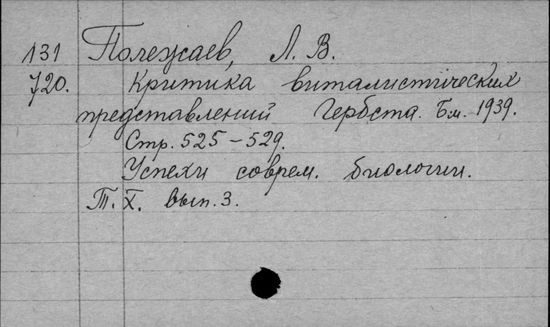 131 Полежаев, Л. В.
720. Критика виталистических
представлений Гербста. Бм. 1939.
Стр. 525-529.
Успехи соврем. биологии.
Т. X. вып. 3.